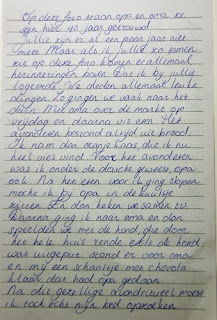 Op deze foto staan opa en oma ze
zijn hier 40 jaar getrouwd.
Jullie zijn er al een paar jaar niet
meer. Maar als ik jullie zo samen
zie op deze foto komen er allemaal
herinneringen boven. Dat ik bij jullie
logeerde. We deden allemaal leuke
dingen. Zo gingen we vaak naar het
met oma over de markt op
vrijdag en daarna vis eten. Het
avondeten bestond altijd uit brood
Ik nam dan oranje kaas, die ik nu
heel vies vind. Voor het avondeten
was ik onder de douche geweest, opa
ook. Na het eten voor ik ging slapen
mocht ik bij opa in de
zitten. En dan keken we samen tv.
Daarna ging ik naar oma en dan
speelden we met de hond, die door
het hele huis rende. Als de hond
was uitgeput stond er voor oma
en mij een schaaltje met chocola
klaar, dat had opa gedaan.
Na dit gezellige avondritueel moest
ik toch echt mijn bed opzoeken.